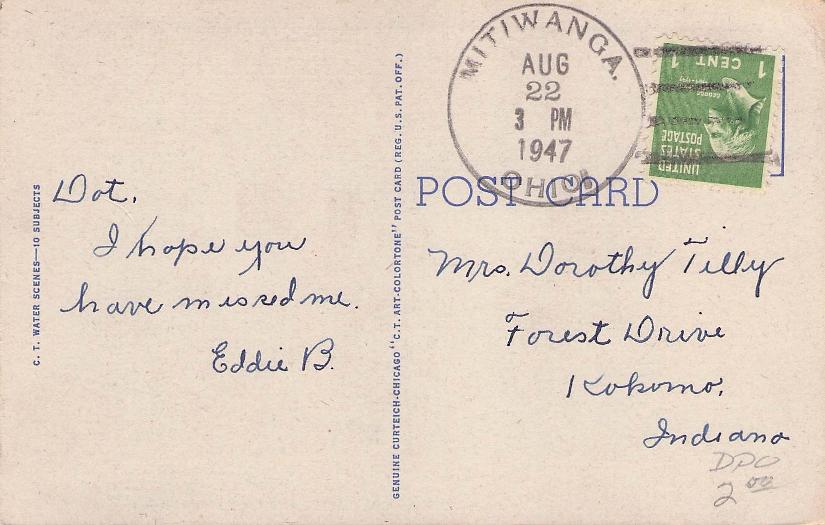 MITIWANGA.
AUG
22
3 PM
1947
OHIO
1 CENT 1
UNITED
STATES
POSTAGE
POST CARD
C. T. WATER SCENES—10 SUBJECTS
Dot,
I hope you
have missed me.
Eddie B.
GENUINE CURTEICH-CHICAGO "C. T. ART-COLORTONE" POST CARD (REG. U. S. PAT. OFF.)
Mrs. Dorothy Tilly
Forest Drive
Kokomo,
Indiana
DPO
2 00